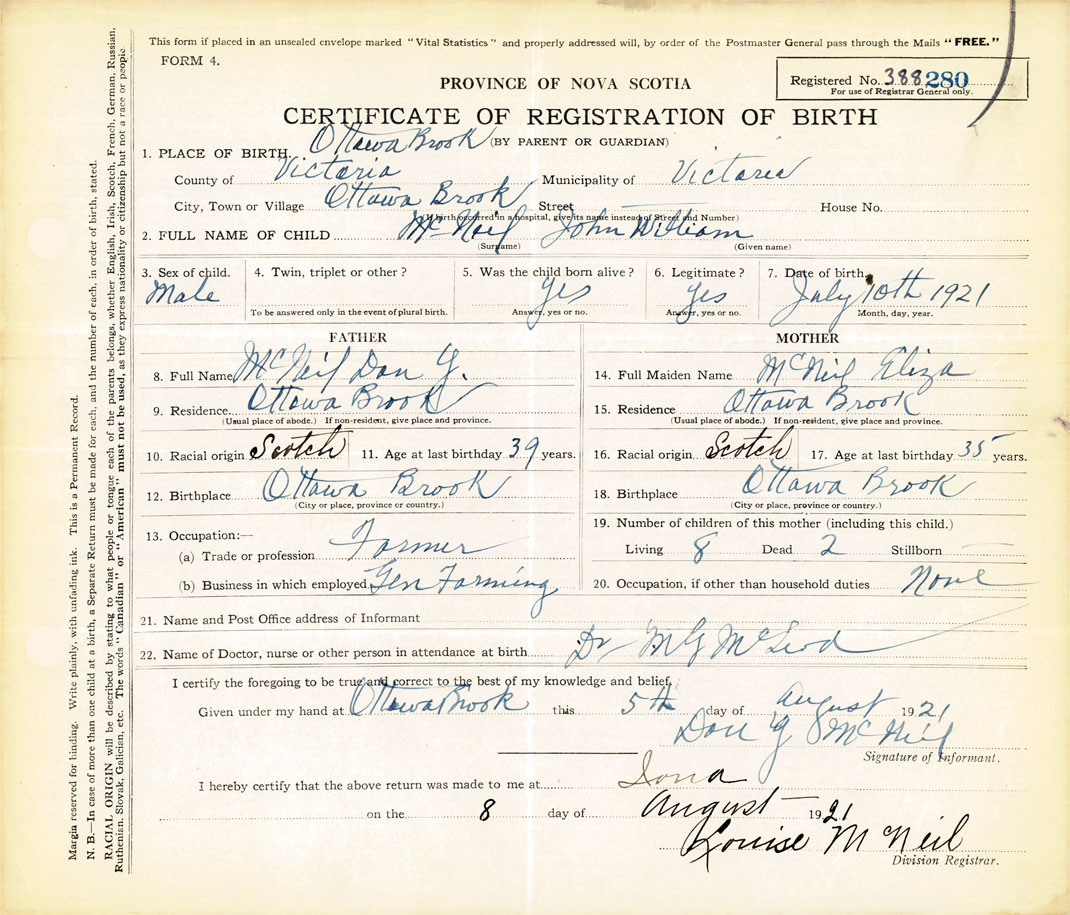 This form if placed in an unsealed envelope marked "Vital Statistics" and properly addressed will, by order of the Postmaster General pass through the Mails "FREE."
FORM 4.
Registered No. 388 280
For use of Registrar General only.
PROVINCE OF NOVA SCOTIA
CERTIFICATE OF REGISTRATION OF BIRTH
(BY PARENT OR GUARDIAN)
1. PLACE OF BIRTH. Ottawa Brook
County of Victoria Municipality of Victoria
City, Town or Village Ottawa Brook Street House No.
(If birth occurred in a hospital, give its name instead of Street and Number)
2. FULL NAME OF CHILD McNeil John William
(Surname) (Given name)
3. Sex of child. 4. Twin, triplet or other? 5. Was the child born alive? 6. Legitimate? 7. Date of birth.
Male yes yes July 10th 1921
To be answered only in the event of plural birth. Answer, yes or no. Answer, yes or no. Month, day, year.
FATHER
8. Full Name McNeil Dan Y.
9. Residence Ottawa Brook
(Usual place of abode.) If non-resident, give place and province.
10. Racial origin Scotch 11. Age at last birthday 39 years.
12. Birthplace Ottawa Brook
(City or place, province or country.)
13. Occupation:—
(a) Trade or profession Farmer
(b) Business in which employed Gen Farming
MOTHER
14. Full Maiden Name McNeil Eliza
15. Residence Ottawa Brook
(Usual place of abode.) If non-resident, give place and province.
16. Racial origin Scotch 17. Age at last birthday 35 years.
18. Birthplace Ottawa Brook
(City or place, province or country.)
19. Number of children of this mother (including this child.)
Living 8 Dead 2 Stillborn —
20. Occupation, if other than household duties None
21. Name and Post Office address of Informant
22. Name of Doctor, nurse or other person in attendance at birth Dr MG McLeod
I certify the foregoing to be true and correct to the best of my knowledge and belief.
Given under my hand at Ottawa Brook this 5th day of August 1921
Dan Y McNeil
Signature of Informant.
I hereby certify that the above return was made to me at Iona
on the 8 day of August 1921
Louise McNeil
Division Registrar.
Margin reserved for binding. Write plainly, with unfading ink. This is a Permanent Record.
N. B.—In case of more than one child at a birth, a Separate Return must be made for each, and the number of each, in order of birth, stated.
RACIAL ORIGIN will be described by stating to what people or tongue each of the parents belongs, whether English, Irish, Scotch, French, German, Russian,
Ruthenian, Slovak, Galician, etc. The words "Canadian" or "American" must not be used, as they express nationality or citizenship but not a race or people.